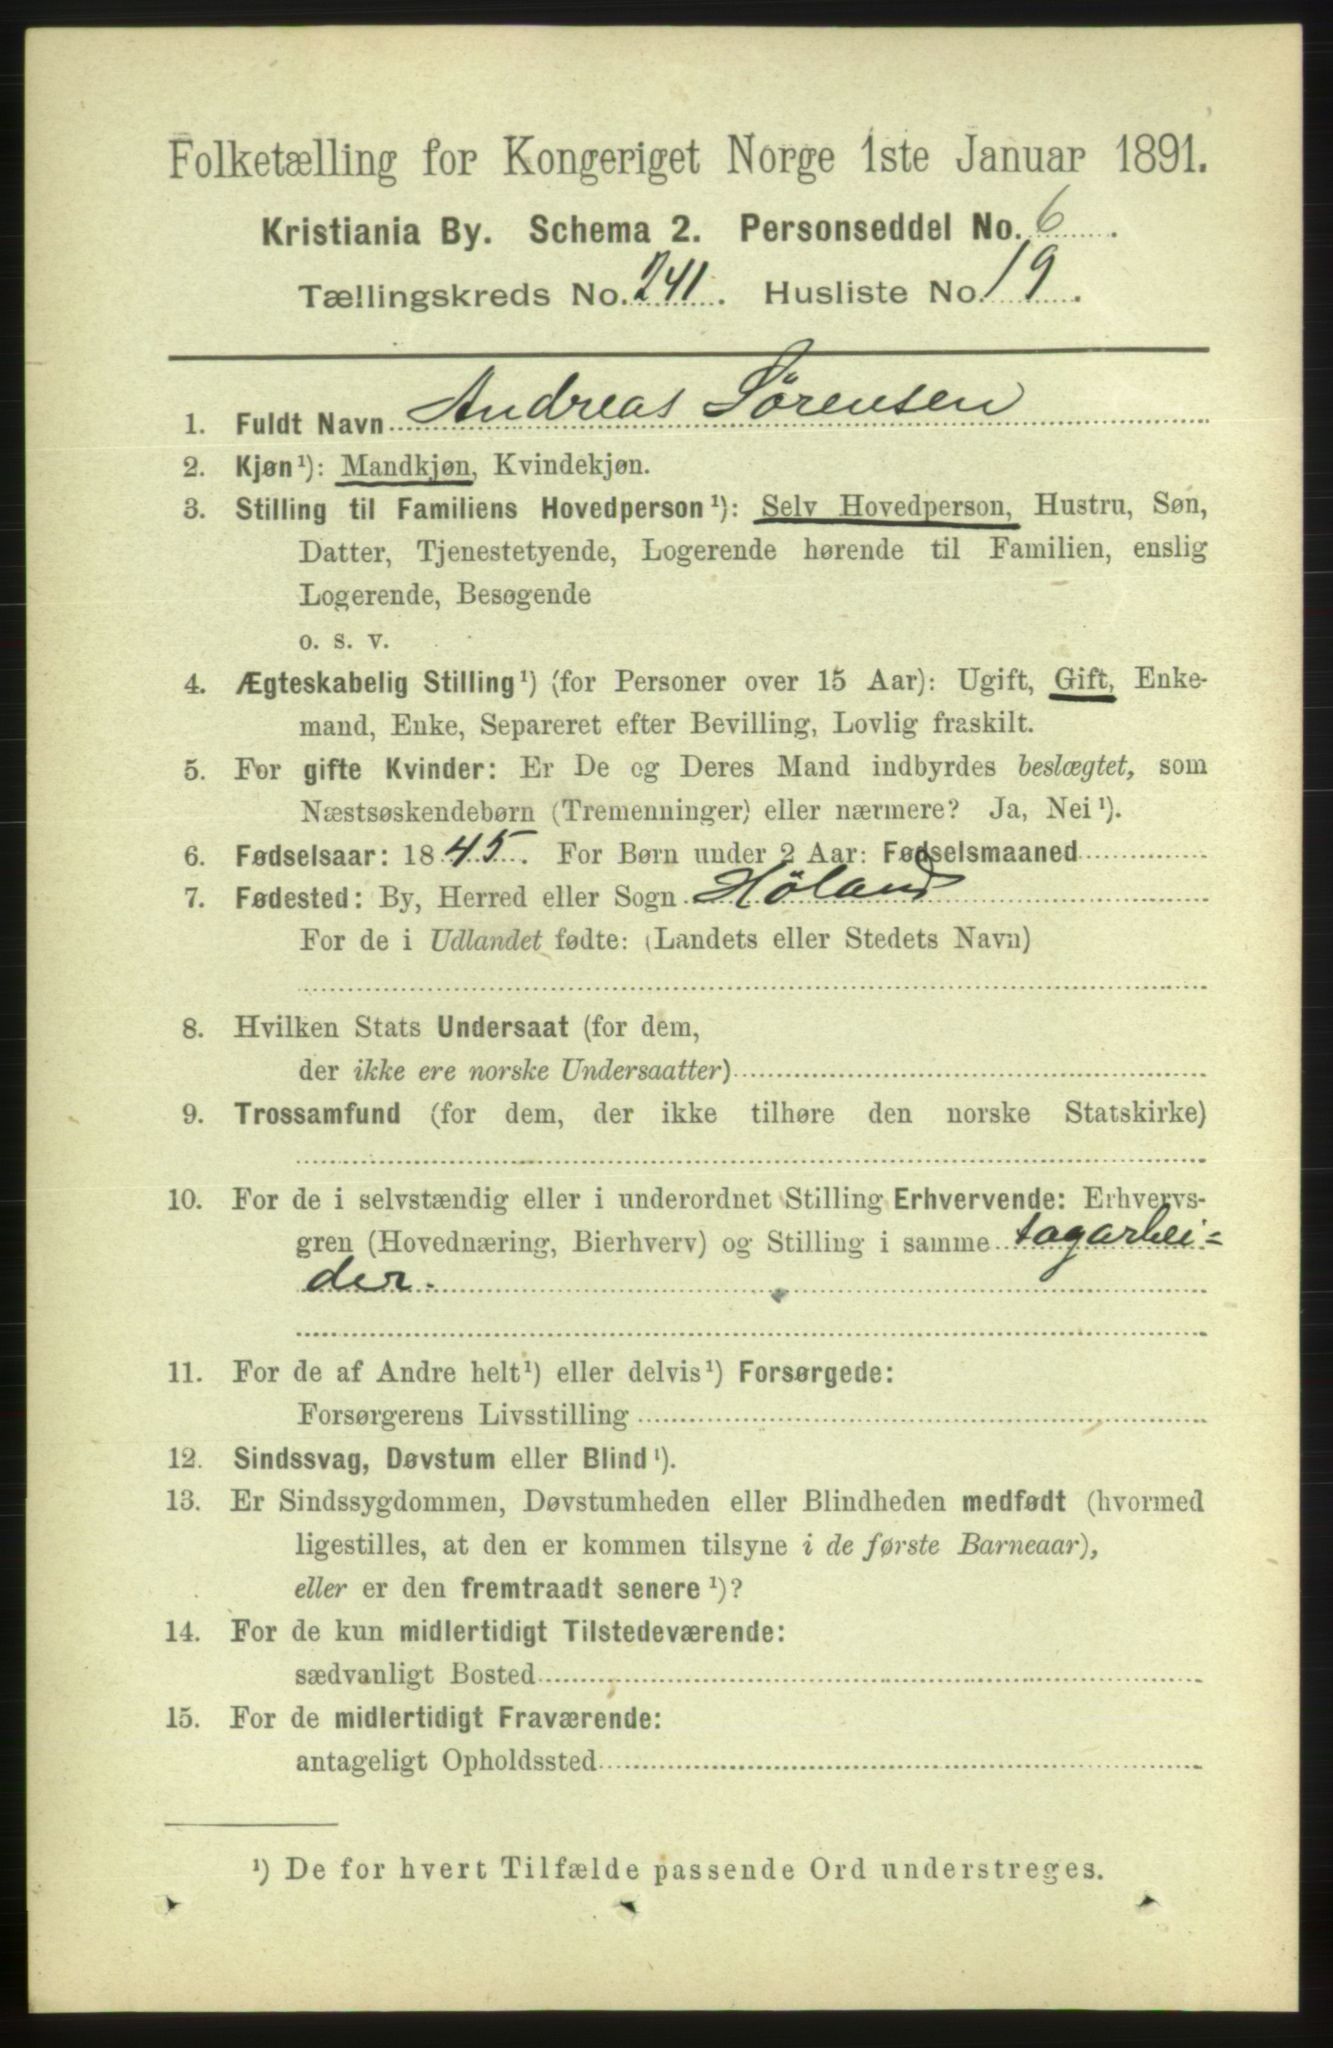 Folketælling for Kongeriget Norge 1ste Januar 1891.
Kristiania By. Schema 2. Personseddel No. 6.
Tællingskreds No. 241. Husliste No. 19.
1. Fuldt Navn Andreas Sörensen
2. Kjøn¹): Mandkjøn, Kvindekjøn.
3. Stilling til Familiens Hovedperson¹): Selv Hovedperson, Hustru, Søn,
Datter, Tjenestetyende, Logerende hørende til Familien, enslig
Logerende, Besøgende
o. s. v.
4. Ægteskabelig Stilling¹) (for Personer over 15 Aar): Ugift, Gift, Enke-
mand, Enke, Separeret efter Bevilling, Lovlig fraskilt.
5. For gifte Kvinder: Er De og Deres Mand indbyrdes beslægtet, som
Næstsøskendebørn (Tremenninger) eller nærmere? Ja, Nei¹).
6. Fødselsaar: 1845. For Børn under 2 Aar: Fødselsmaaned
7. Fødested: By, Herred eller Sogn Höland
For de i Udlandet fødte: (Landets eller Stedets Navn)
8. Hvilken Stats Undersaat (for dem,
der ikke ere norske Undersaatter)
9. Trossamfund (for dem, der ikke tilhøre den norske Statskirke)
10. For de i selvstændig eller i underordnet Stilling Erhvervende: Erhvervs-
gren (Hovednæring, Bierhverv) og Stilling i samme sagarbei=
der.
11. For de af Andre helt¹) eller delvis¹) Forsørgede:
Forsørgerens Livsstilling
12. Sindssvag, Døvstum eller Blind¹).
13. Er Sindssygdommen, Døvstumheden eller Blindheden medfødt (hvormed
ligestilles, at den er kommen tilsyne i de første Barneaar),
eller er den fremtraadt senere¹)?
14. For de kun midlertidigt Tilstedeværende:
sædvanligt Bosted
15. For de midlertidigt Fraværende:
antageligt Opholdssted
¹) De for hvert Tilfælde passende Ord understreges.